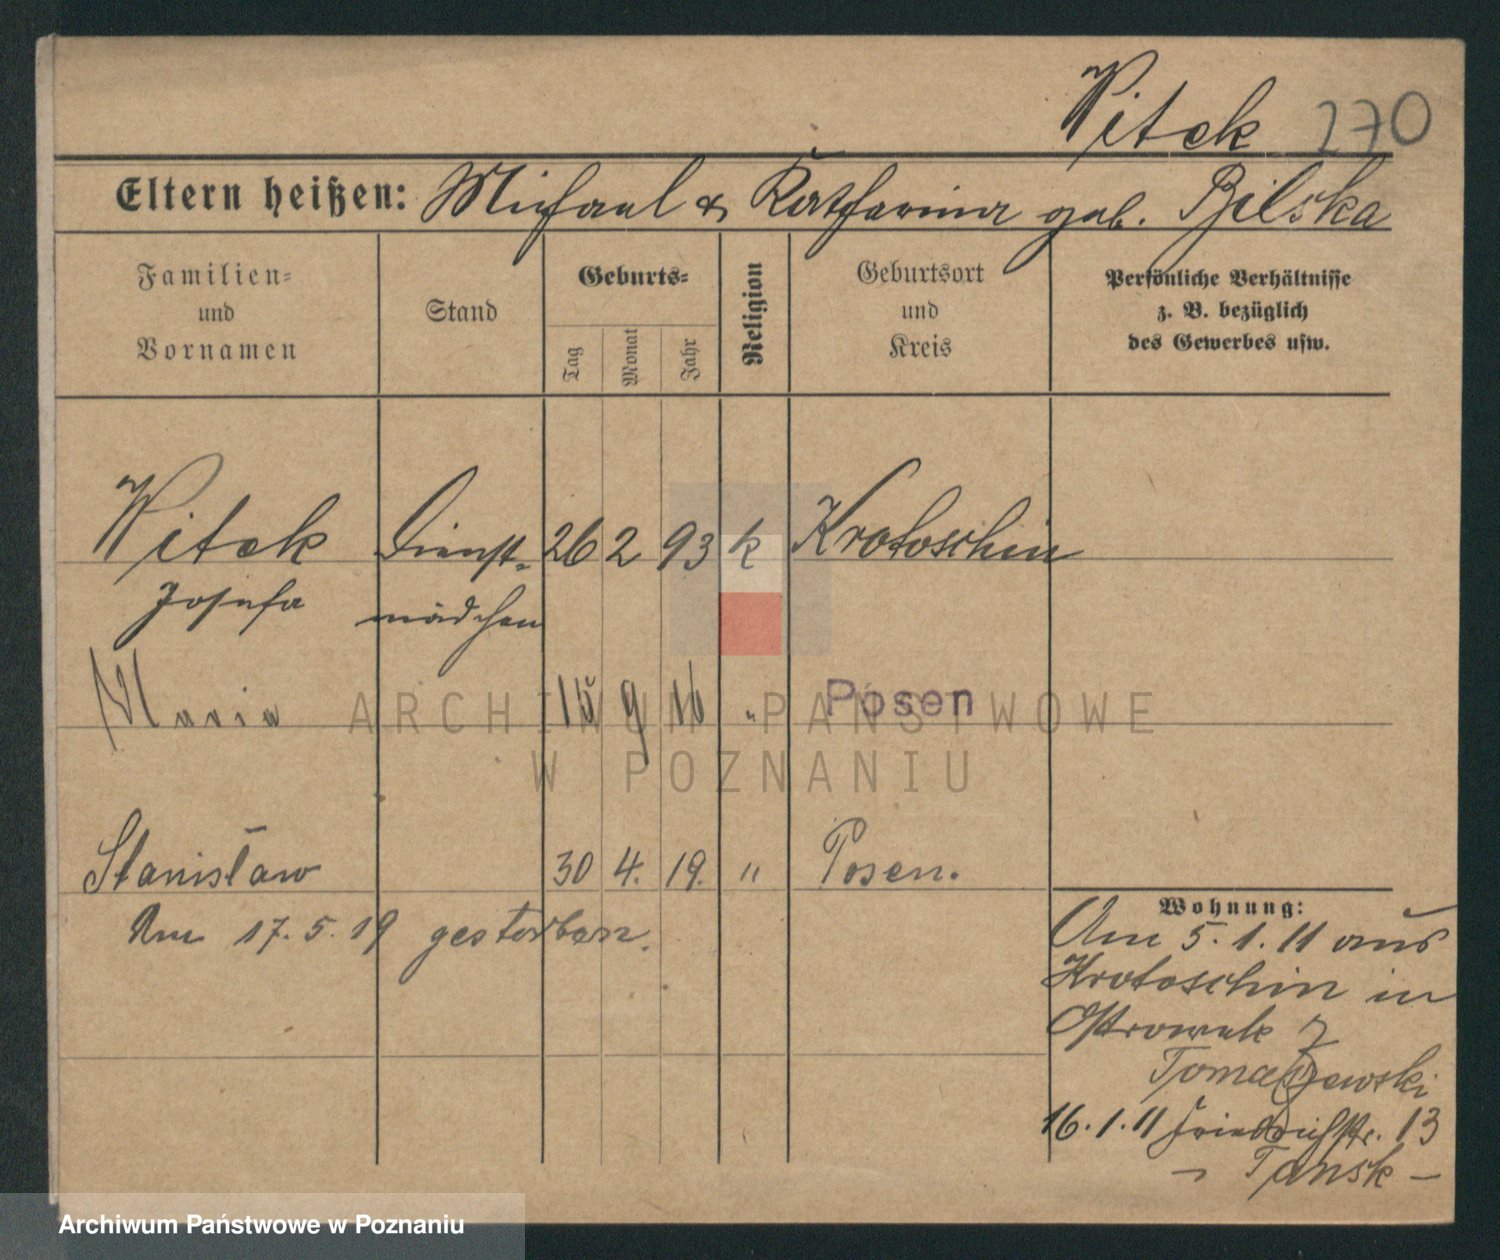 Witek 270
Eltern heißen: Michael & Katharina geb. Bilska
Familien=
und
Vornamen
Stand
Geburts=
Tag
Monat
Jahr
Religion
Geburtsort
und
Kreis
Persönliche Verhältnisse
z. B. bezüglich
des Gewerbes usw.
Witek Dienst= 26 2 93 k Krotoschin
Josefa mädchen
Maria 15 9 16 " Posen
Stanisław 30 4. 19. " Posen.
Am 17. 5. 19 gestorben.
Wohnung:
Am 5. 1. 11 aus
Krotoschin in
Ostrowek 7
Tomaszewski
16. 1. 11 Friedrichstr. 13
Tansk –
ARCHIWUM PAŃSTWOWE
W POZNANIU
Archiwum Państwowe w Poznaniu